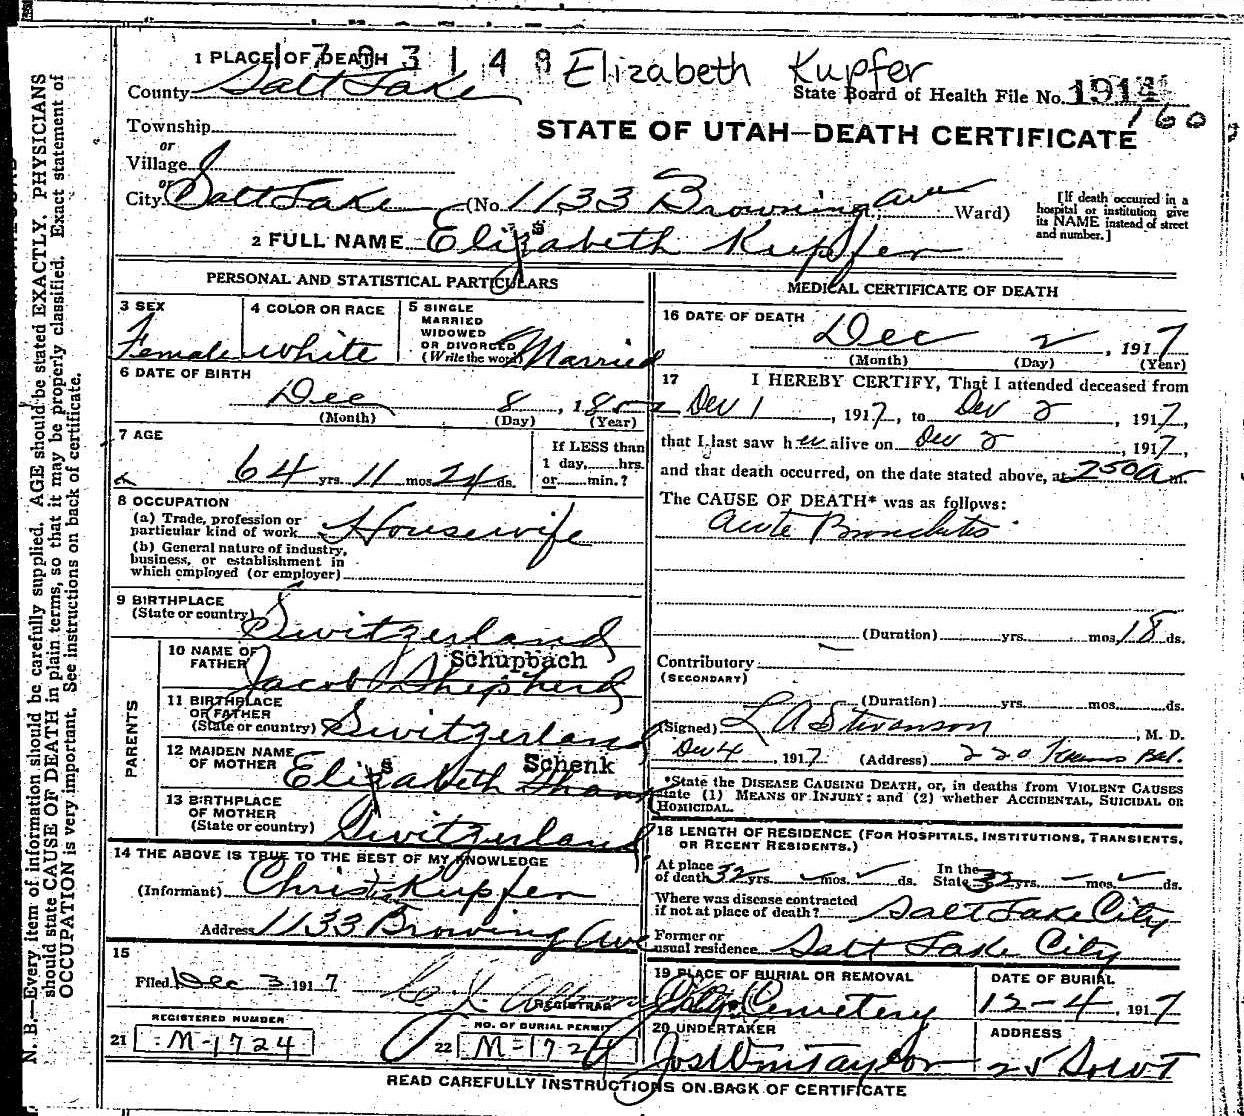 1 PLACE OF DEATH 1 7 0 3 1 4 9 Elizabeth Kupfer
County Salt Lake State Board of Health File No. 1914
160
Township
or
Village
or
STATE OF UTAH—DEATH CERTIFICATE
City Salt Lake (No. 1133 Browning Ave Ward)
[If death occurred in a
hospital or institution give
its NAME instead of street
and number.]
2 FULL NAME Elizabeth Kupfer
s
PERSONAL AND STATISTICAL PARTICULARS
3 SEX
Female
4 COLOR OR RACE
White
5 SINGLE
MARRIED
WIDOWED
OR DIVORCED
(Write the word) Married
6 DATE OF BIRTH
Dec 8, 1852
(Month) (Day) (Year)
7 AGE
64 yrs. 11 mos. 24 ds.
If LESS than
1 day, hrs.
or min.?
8 OCCUPATION
(a) Trade, profession or
particular kind of work Housewife
(b) General nature of industry,
business, or establishment in
which employed (or employer)
9 BIRTHPLACE
(State or country) Switzerland
PARENTS
10 NAME OF
FATHER Jacob Shepherd
Schupbach
11 BIRTHPLACE
OF FATHER
(State or country) Switzerland
12 MAIDEN NAME
OF MOTHER Elizabeth
s
Schenk
13 BIRTHPLACE
OF MOTHER
(State or country) Switzerland
14 THE ABOVE IS TRUE TO THE BEST OF MY KNOWLEDGE
(Informant) Christ Kupfer
Address 1133 Browing Ave
15
Filed Dec 3 1917
REGISTRAR
REGISTERED NUMBER
21 M-1724
NO. OF BURIAL PERMIT
22 M-1724
MEDICAL CERTIFICATE OF DEATH
16 DATE OF DEATH
Dec 2, 1917
(Month) (Day) (Year)
17 I HEREBY CERTIFY, That I attended deceased from
Dec 1, 1917, to Dec 2, 1917,
that I last saw her alive on Dec 2, 1917,
and that death occurred, on the date stated above, at 250 A m.
The CAUSE OF DEATH* was as follows:
Acute Bronchitis
(Duration) yrs. mos. 18 ds.
Contributory
(SECONDARY)
(Duration) yrs. mos. ds.
(Signed) L A Stevenson, M. D.
Dec 4, 1917 (Address) 220 Kearns Bld.
*State the DISEASE CAUSING DEATH, or, in deaths from VIOLENT CAUSES
state (1) MEANS OF INJURY; and (2) whether ACCIDENTAL, SUICIDAL OR
HOMICIDAL.
18 LENGTH OF RESIDENCE (FOR HOSPITALS, INSTITUTIONS, TRANSIENTS,
OR RECENT RESIDENTS.)
At place
of death 32 yrs. mos. ds.
In the
State 32 yrs. mos. ds.
Where was disease contracted
if not at place of death? Salt Lake City
Former or
usual residence Salt Lake City
19 PLACE OF BURIAL OR REMOVAL
City Cemetery
DATE OF BURIAL
12-4, 1917
20 UNDERTAKER
Jos Wm Taylor
ADDRESS
25 So W T
READ CAREFULLY INSTRUCTIONS ON BACK OF CERTIFICATE
N. B.—Every item of information should be carefully supplied. AGE should be stated EXACTLY. PHYSICIANS
should state CAUSE OF DEATH in plain terms, so that it may be properly classified. Exact statement of
OCCUPATION is very important. See instructions on back of certificate.